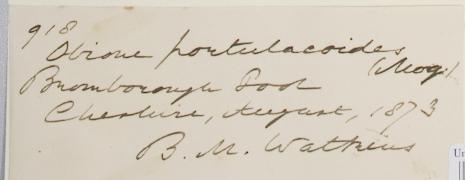 918
Obione portulacoides
(Moq.)
Bromborough Pool
Cheshire, August, 1873
B. M. Watkins
Un